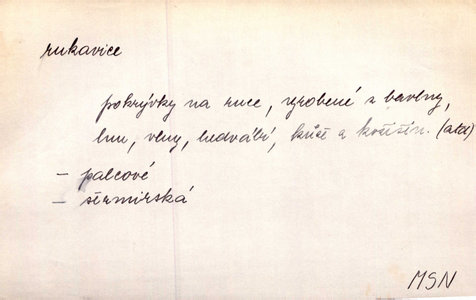 rukavice
pokrývky na ruce, vyrobené z bavlny,
lnu, vlny, hedvábí, kůže a kožišin. (atd)
– palcové
– šermířská
MSN